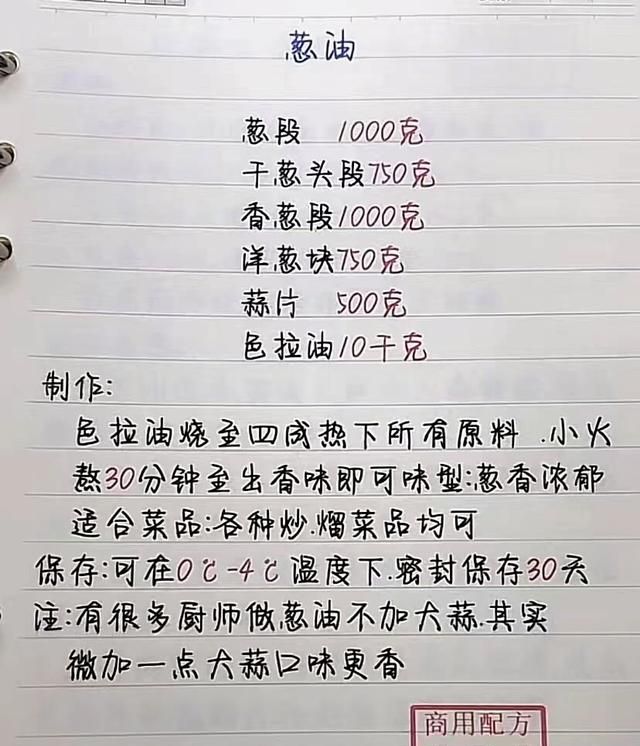 葱油
葱段 1000克
干葱头段750克
香葱段1000克
洋葱块750克
蒜片 500克
色拉油10千克
制作:
色拉油烧至四成热下所有原料.小火
熬30分钟至出香味即可味型:葱香浓郁
适合菜品:各种炒.熘菜品均可
保存:可在0℃-4℃温度下.密封保存30天
注:有很多厨师做葱油不加大蒜.其实
微加一点大蒜口味更香
商用配方